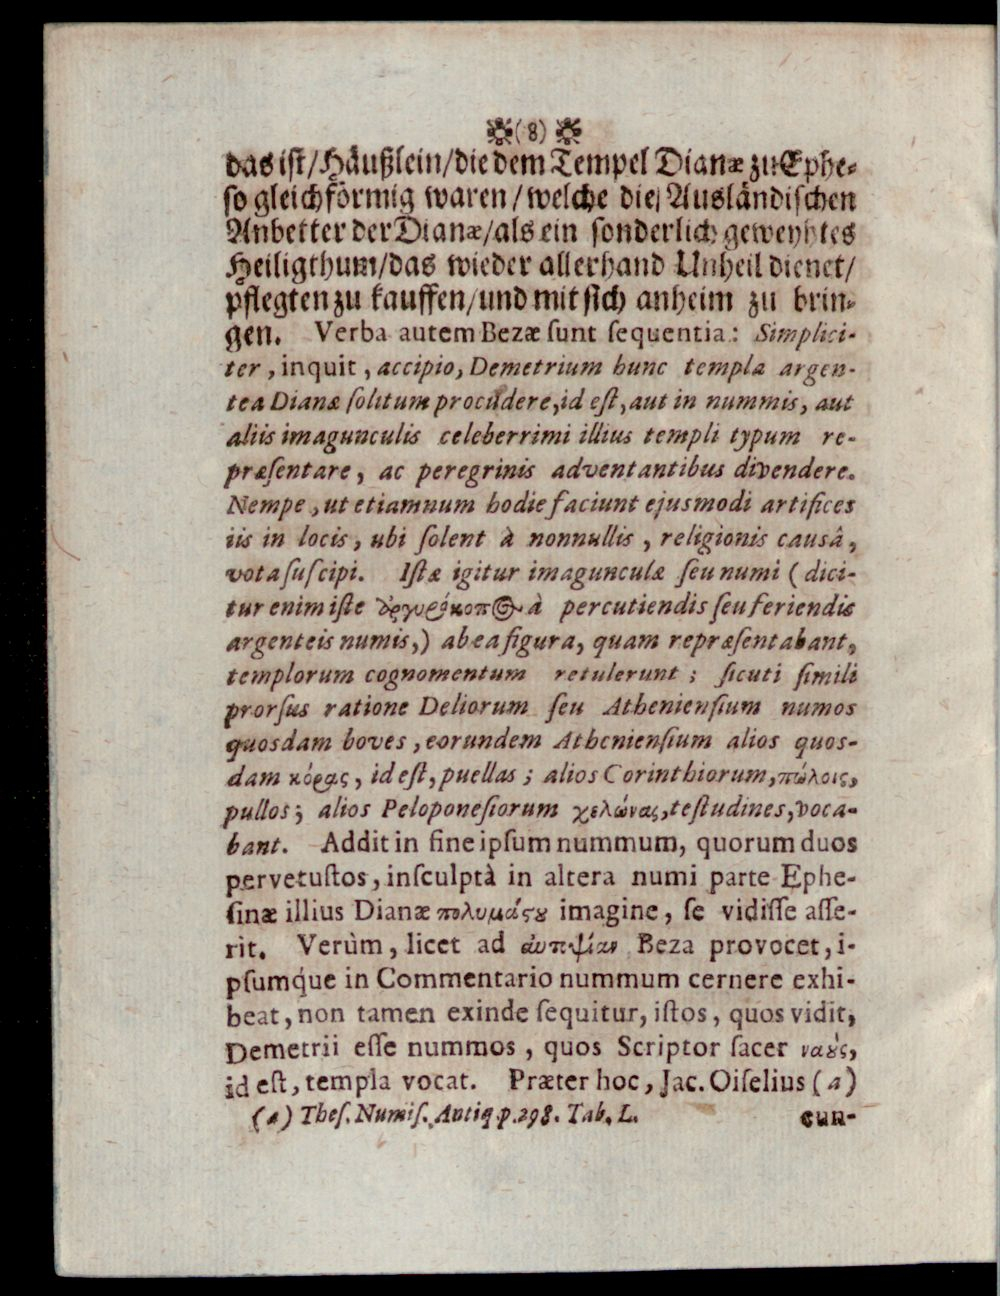 (8)
das ist/Häußlein/die dem Tempel Dianæ zu Ephe-
so gleichförmig waren/welche die Ausländischen
Anbetter der Dianæ/als ein sonderlich geweyhtes
Heiligthum/das wieder allerhand Unheil dienet/
pflegten zu kauffen/und mit sich anheim zu brin-
gen. Verba autem Bezæ ſunt ſequentia: Simplici-
ter, inquit, accipio, Demetrium hunc templa argen-
tea Dianæ ſolitum procudere, id eſt, aut in nummis, aut
aliis imagunculis celeberrimi illius templi typum re-
præſentare, ac peregrinis adventantibus divendere.
Nempe, ut etiamnum hodie faciunt ejusmodi artifices
iis in locis, ubi ſolent à nonnullis, religionis causâ,
vota ſuſcipi. Iſtæ igitur imagunculæ ſeu numi (dici-
tur enim iſte ἀργυρόκοπ à percutiendis ſeu feriendis
argenteis numis,) ab ea figura, quam repræſentabant,
templorum cognomentum retulerunt; ſicuti ſimili
prorſus ratione Deliorum ſeu Athenienſium numos
quosdam boves, eorundem Athenienſium alios quos-
dam κόρας, id eſt, puellas; alios Corinthiorum, πώλοις,
pullos; alios Peloponeſiorum χελώνας, teſtudines, voca-
bant. Addit in fine ipſum nummum, quorum duos
pervetuſtos, inſculptà in altera numi parte Ephe-
ſinæ illius Dianæ πολυμάςȣ imagine, ſe vidiſſe aſſe-
rit. Verùm, licet ad αὐτοψίαν Beza provocet, i-
pſumq́ue in Commentario nummum cernere exhi-
beat, non tamen exinde ſequitur, iſtos, quos vidit,
Demetrii eſſe nummos, quos Scriptor ſacer ναȣ̀ς,
id eſt, templa vocat. Præter hoc, Jac. Oiſelius (a)
(a) Theſ. Numiſ. Antiq. p. 298. Tab. L. cun-